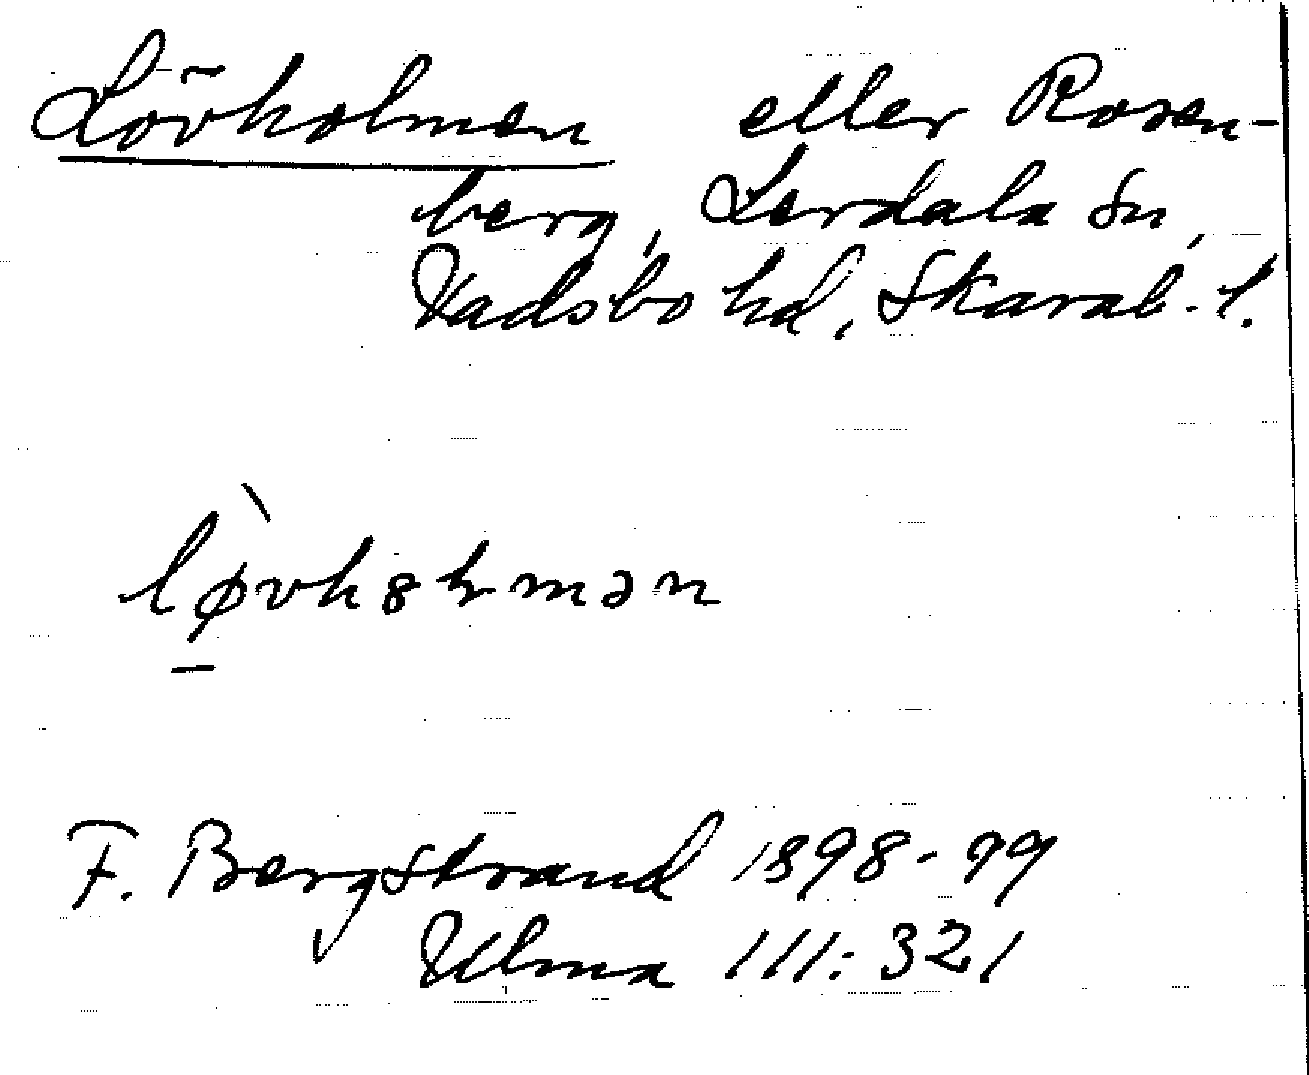 Lövholmen eller Rosen-
berg, Lerdala sn,
Vadsbo hd, Skarab. l.
lø̀vhoɬmən
F. Bergstrand 1898-99
Ulma 111:321